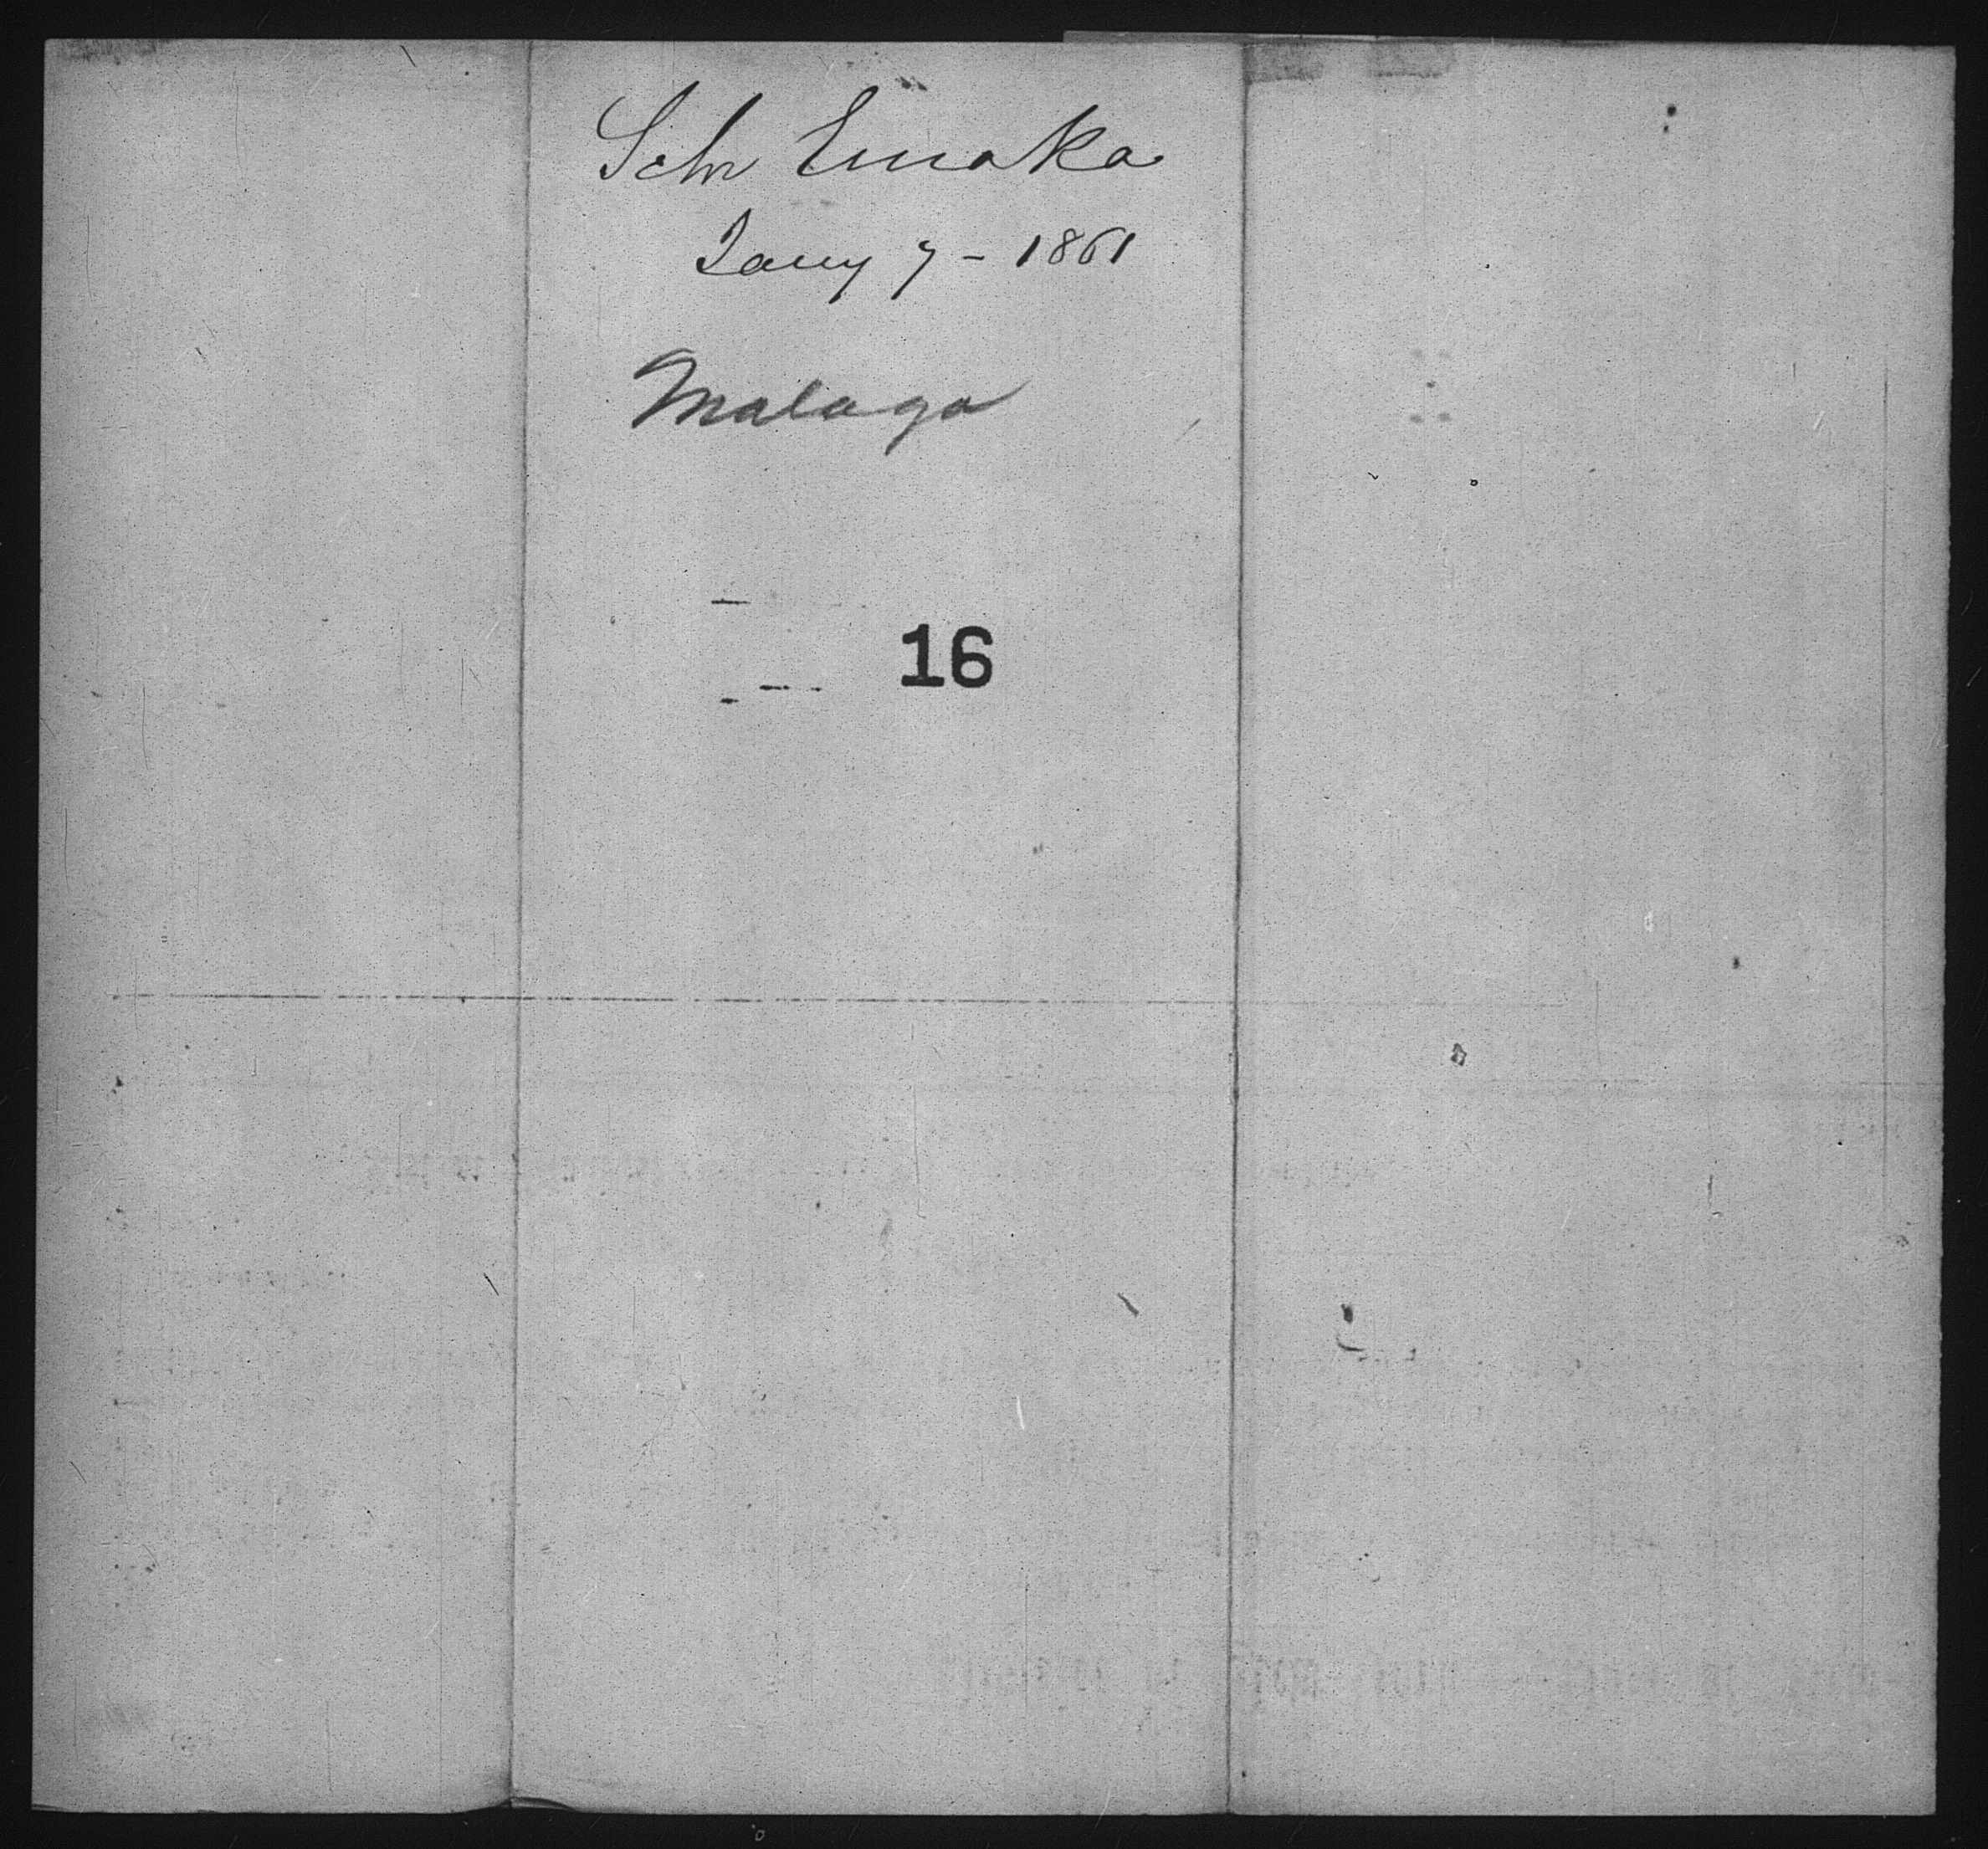 Schr Eureka
Jany 7 - 1861
Malaga
16